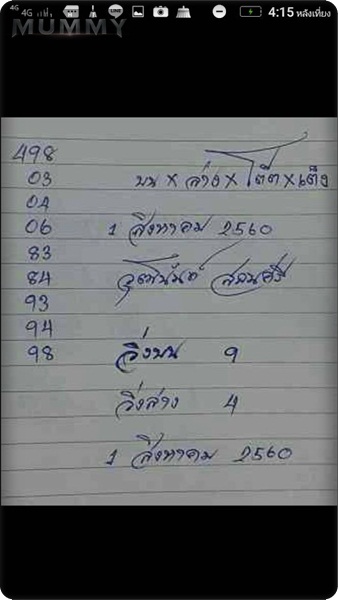 4G 4G 4:15 หลังเที่ยง
MUMMY
498
03
04
06
83
84
93
94
98
บน x ล่าง x โต๊ด x เต็ง
1 สิงหาคม 2560
วิ่งบน 9
วิ่งล่าง 4
1 สิงหาคม 2560